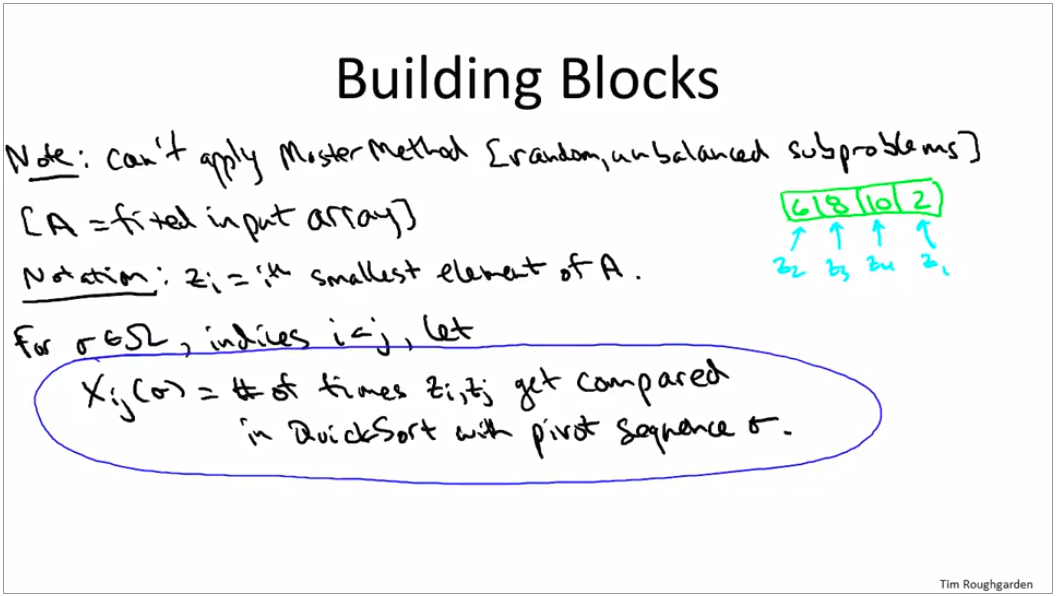 Building Blocks
Note: can't apply Master Method [random, unbalanced subproblems]
[A = fixed input array]
6 8 10 2
z2 z3 z4 z1
Notation: zi = ith smallest element of A.
For σ∈Ω, indices i<j, let
Xij(σ) = # of times zi,zj get compared
in QuickSort with pivot sequence σ.
Tim Roughgarden